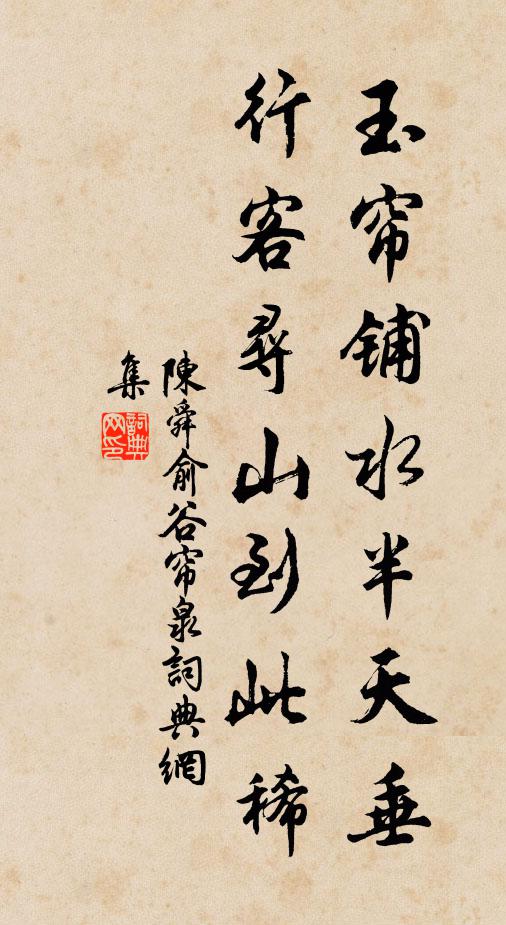 玉帘铺水半天垂
行客尋山到此稀
陳舜俞谷帘泉詞典網
集
詞典网印